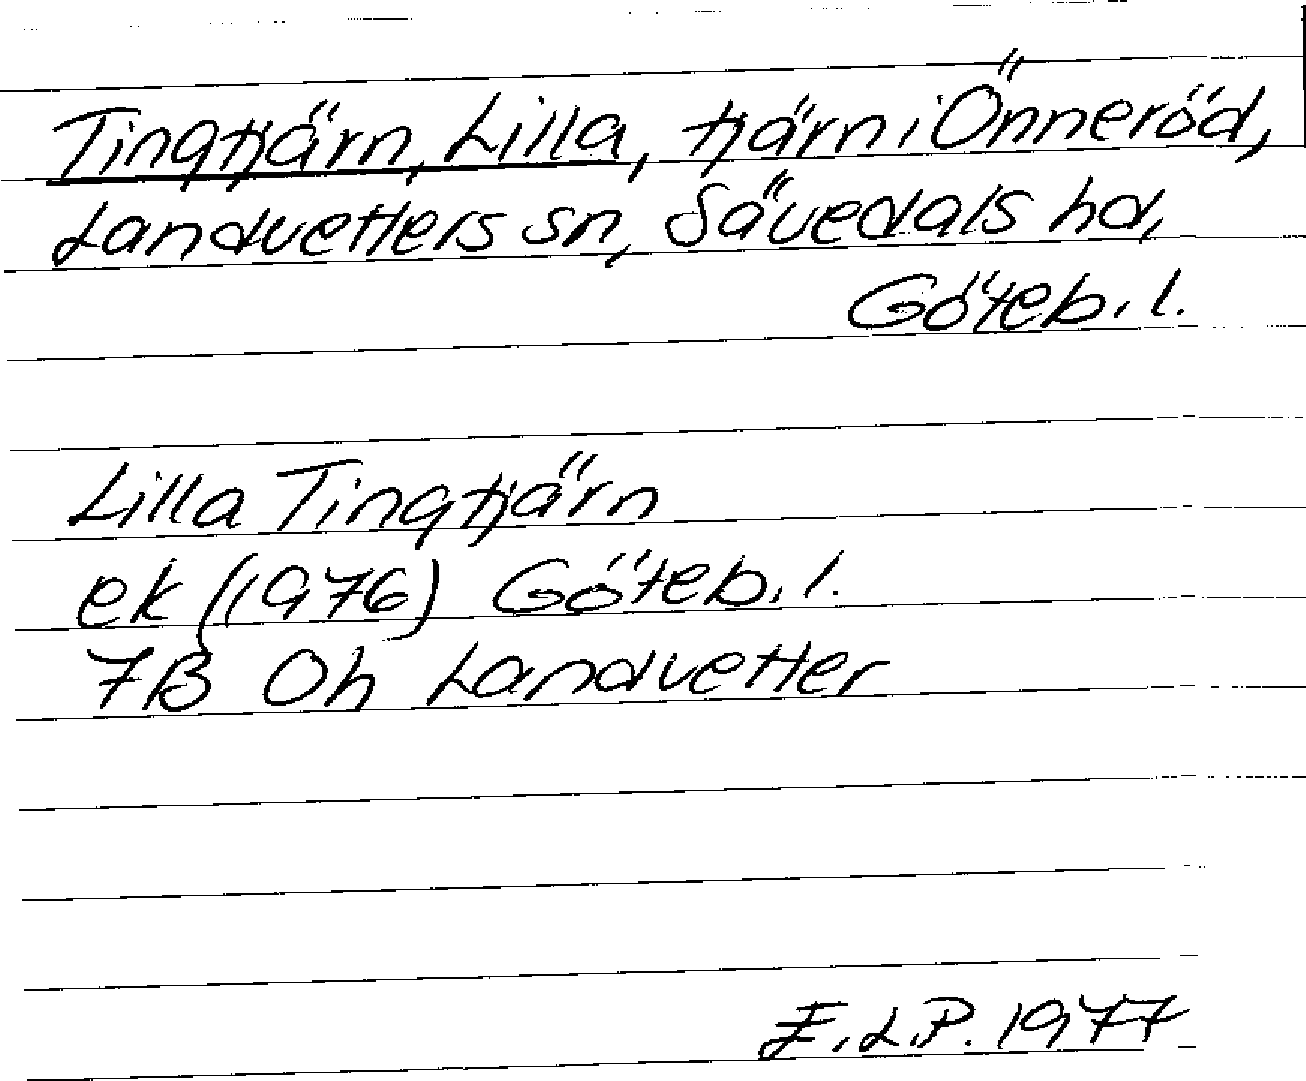 Tingtjärn, Lilla, tjärn i Önneröd,
Landvetters sn, Sävedals hd,
Göteb. l.
Lilla Tingtjärn
ek (1976) Göteb. l.
7B 0h Landvetter
E.L.P. 1977